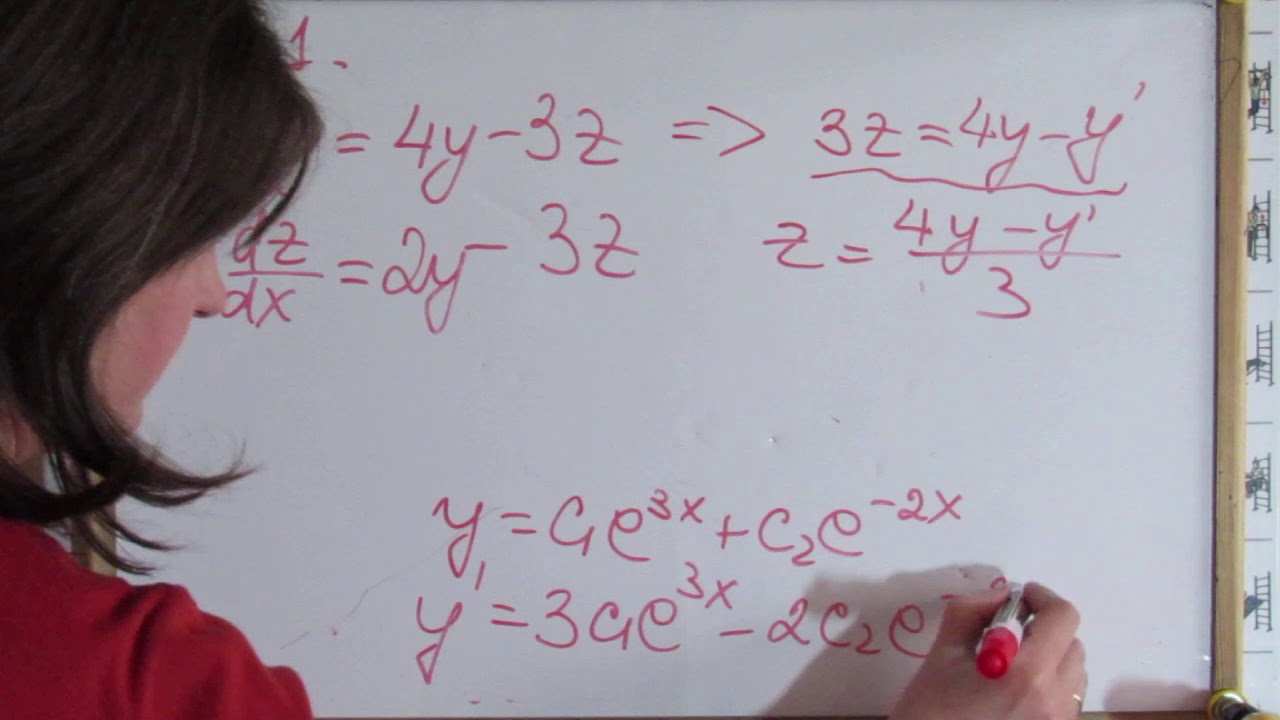 1.
= 4y - 3z => 3z = 4y - y'
dz/dx = 2y - 3z z = (4y - y')/3
y = C₁e^{3x} + C₂e^{-2x}
y' = 3C₁e^{3x} - 2C₂e